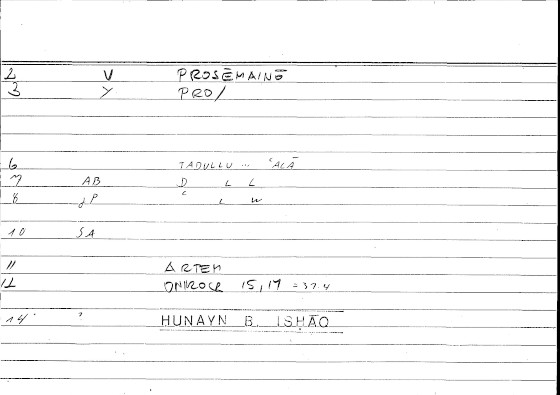 2 V PROSĒMAINŌ
3 Y PRO/
6 TADULLU ... ʿALĀ
7 AB D L L
8 JP ʿ L W
10 SA
11 ARTEM
12 ONIROCR 15,17 = 37.4
14 HUNAYN B. ISHĀQ